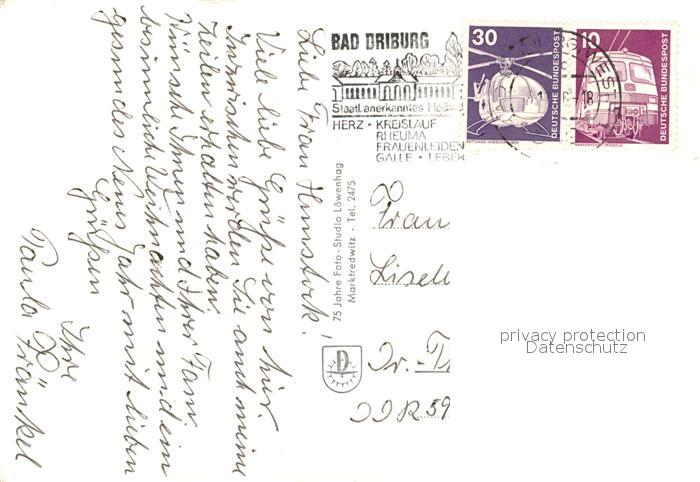 Liebe Frau Hunstock!
Viele liebe Grüße von hier.
Inzwischen werden Sie auch meine
Zeilen erhalten haben.
Wünsche Ihnen und Ihrer Fam.
besinnliche Weihnachten und ein
gesundes Neues Jahr mit lieben
Grüßen
Ihre
Paula Fränkel
BAD DRIBURG
Staatl. anerkanntes
HERZ • KREISLAUF
RHEUMA
FRAUENLEIDEN
GALLE • LEBER
30
DEUTSCHE BUNDESPOST
10
DEUTSCHE BUNDESPOST
75 Jahre Foto-Studio Löwenhag
Marktredwitz · Tel. 2475
Frau
Lisel
DDR 59
D
privacy protection
Datenschutz